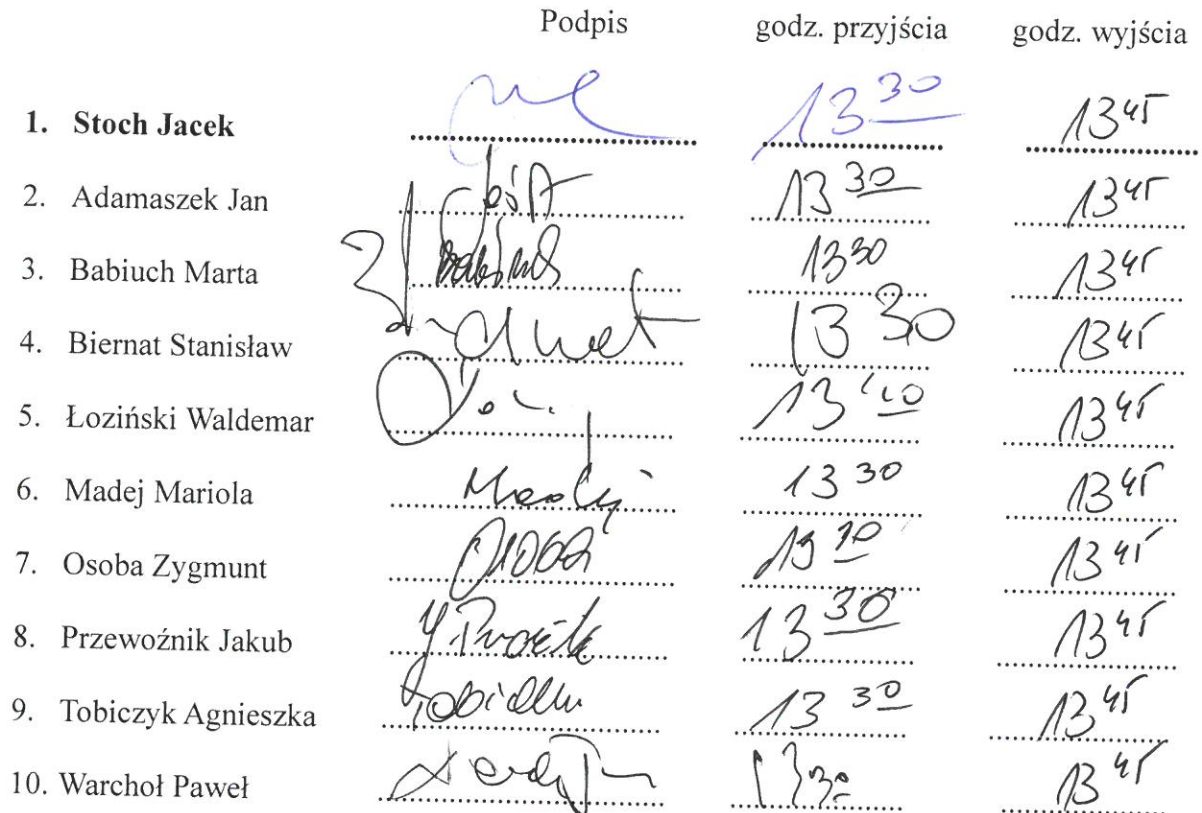 Podpis godz. przyjścia godz. wyjścia
1. Stoch Jacek 13 30 13 45
2. Adamaszek Jan 13 30 13 45
3. Babiuch Marta 13 30 13 45
4. Biernat Stanisław 13 30 13 45
5. Łoziński Waldemar 13 13 45
6. Madej Mariola Madej 13 30 13 45
7. Osoba Zygmunt Osoba 13 13 45
8. Przewoźnik Jakub 13 30 13 45
9. Tobiczyk Agnieszka 13 30 13 45
10. Warchoł Paweł 13 30 13 45